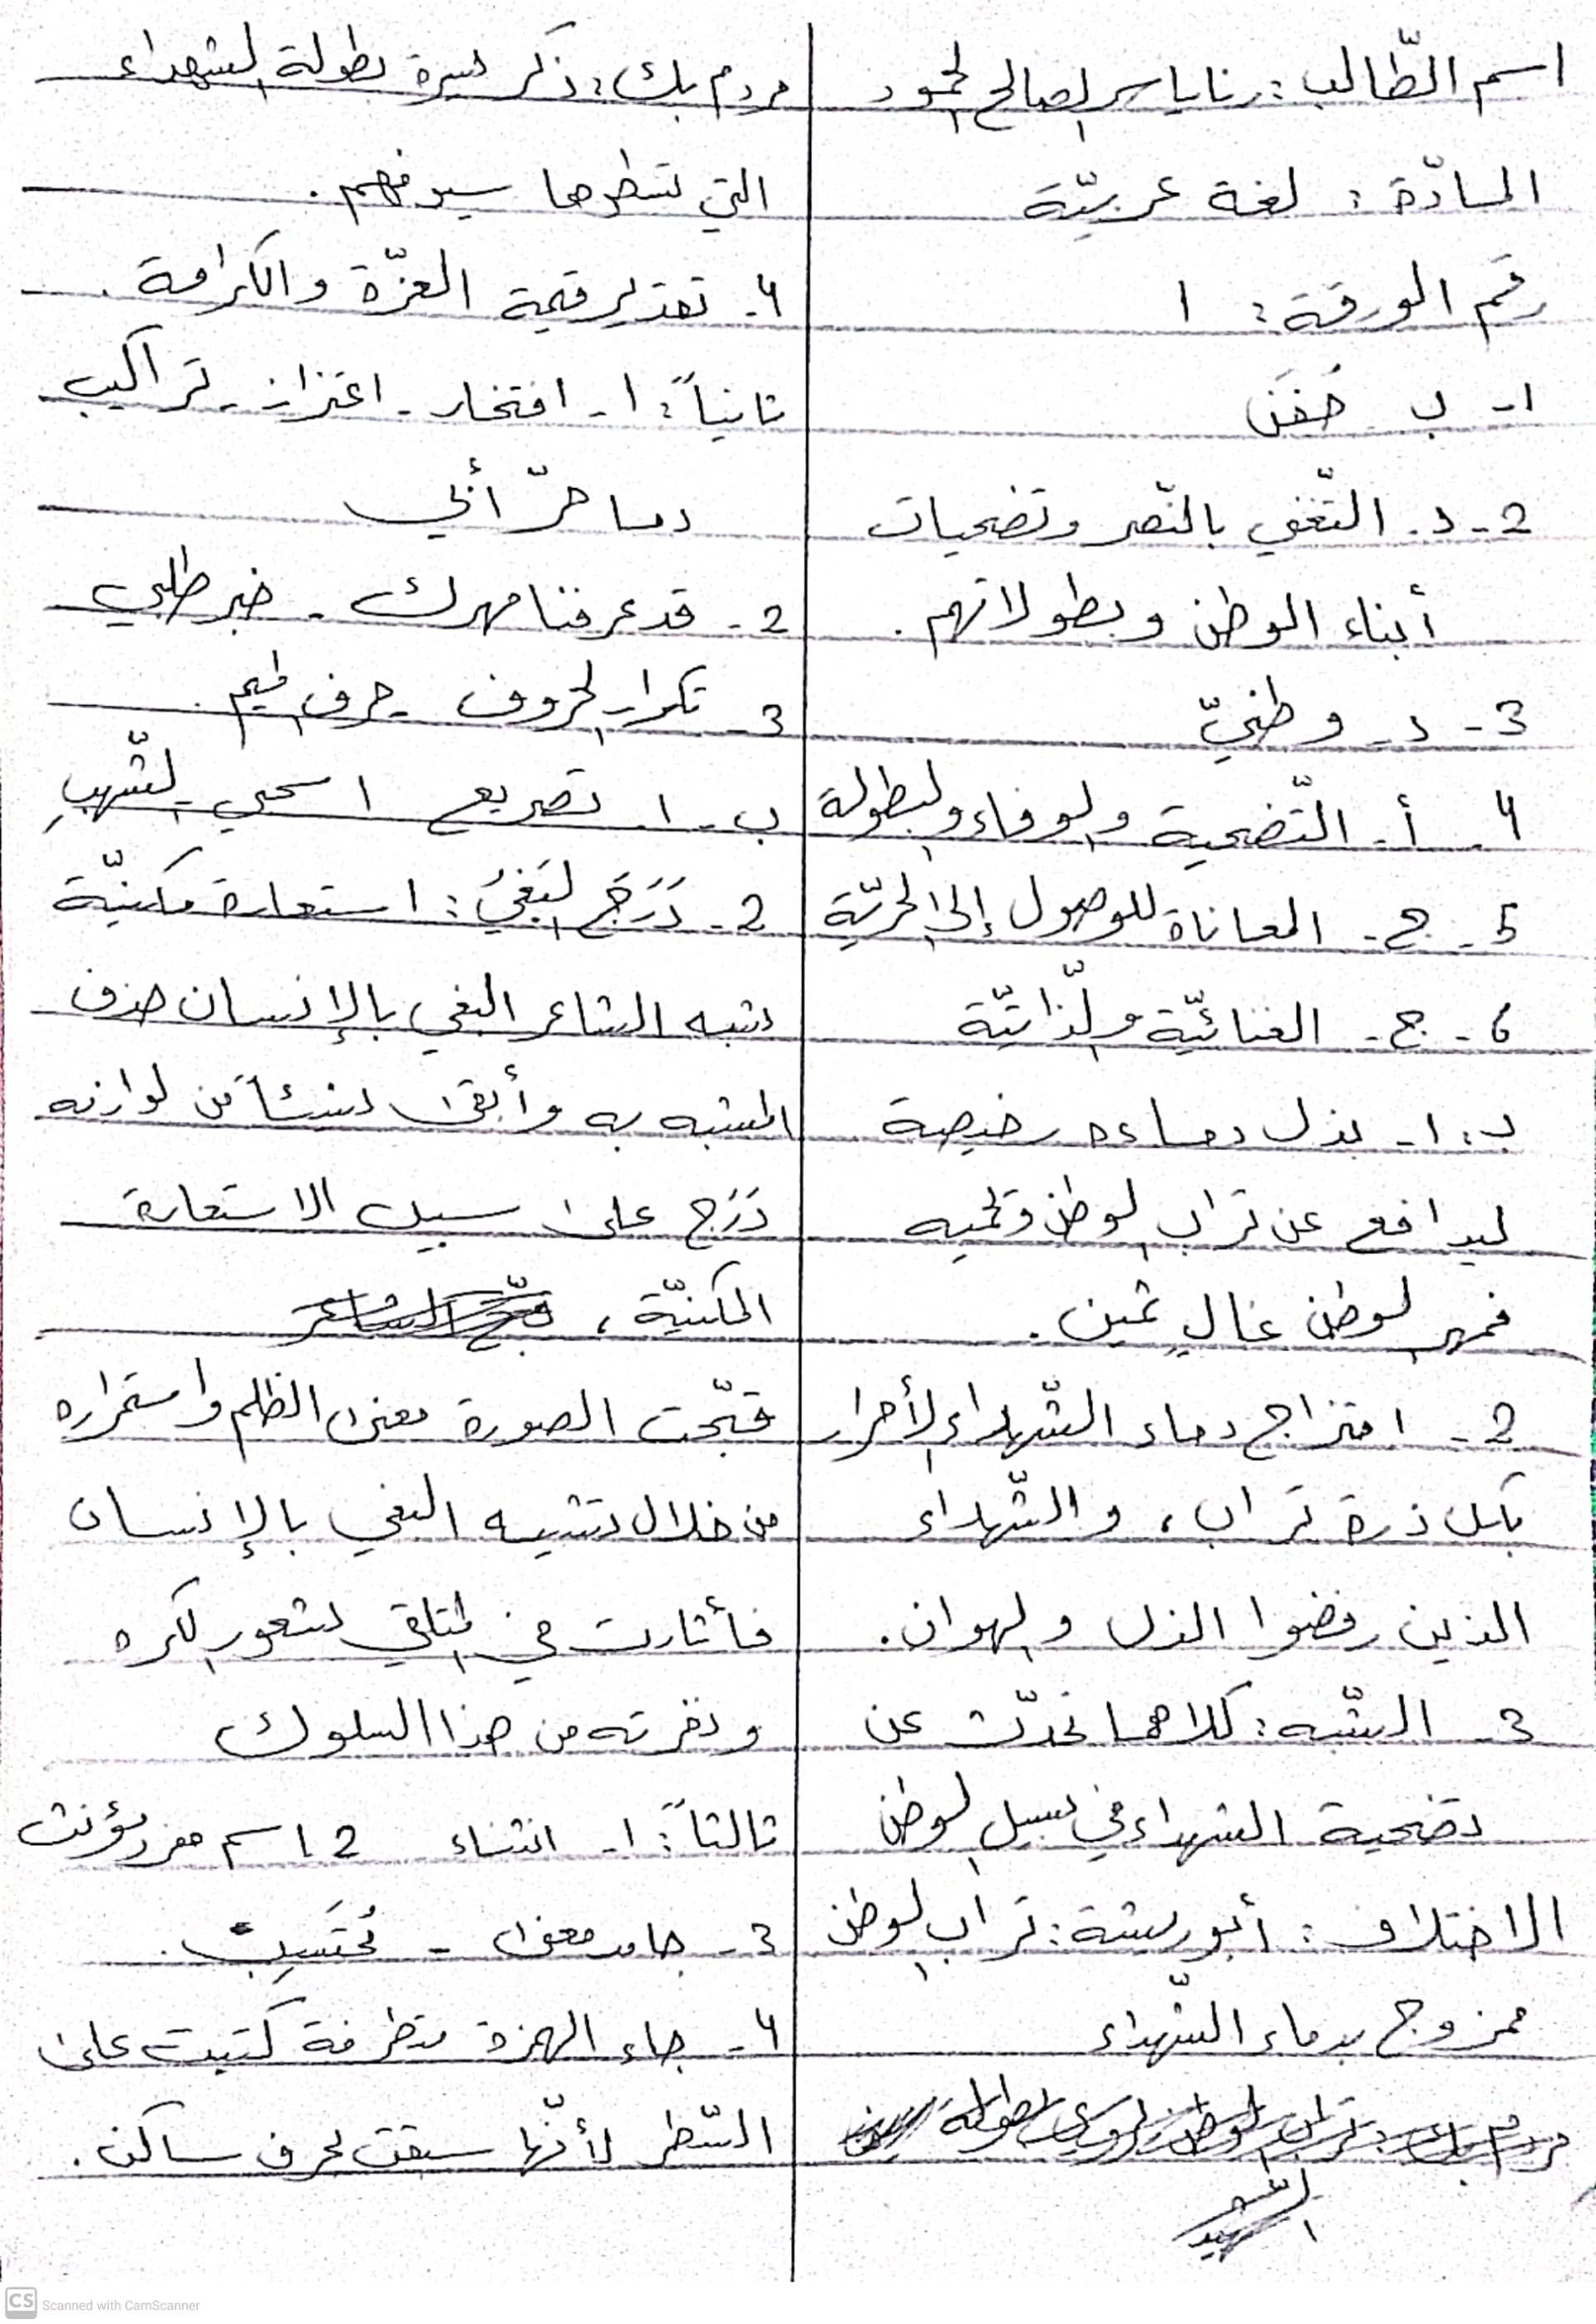 اسم الطّالب: رنا ياسر الصالح الحمود
المادّة: لغة عربيّة
رقم الورقة: ١
١- ب خفق
2- د. التّغني بالنّصر وتضحيات
أبناء الوطن وبطولاتهم.
3- د- وطنيّ
4- أ- التّضحية والوفاء والبطولة
5- ج- المعاناة للوصول إلى الحريّة
6- ج- الغنائيّة والذّاتيّة
ب: ١- بذل دماءه رخيصة
ليدافع عن تراب الوطن ويحميه
فمهر الوطن غالٍ ثمين.
2- امتزاج دماء الشّهداء الأحرار
بكل ذرة تراب، والشّهداء
الذين رفضوا الذل والهوان.
3- الشّبه: كلاهما تحدّث عن
تضحية الشهداء في سبيل الوطن
الاختلاف: أبو ريشة: تراب الوطن
ممزوج بدماء الشّهداء
مردم بك: ذكر سيرة بطولة الشهداء
التي تسطرها سيوفهم.
4- تقدير قيمة العزّة والكرامة.
ثانياً: ١- افتخار - اعتزاز - تراكيب
دما حرّ أبي
2- قد عرفنا مهرك - خبر طلبي
3- تكرار الحروف - حرف الميم.
ب- ١- تصريع اسحبي - الشّهبِ
2- دَرَجَ البَغيُ: استعارة مكنيّة
شبه الشاعر البغي بالإنسان حذف
المشبه به وأبقى شيئاً من لوازمه
دَرَج على سبيل الاستعارة
المكنيّة،
قبّحت الصورة معنى الظلم واستمراره
من خلال تشبيه البغي بالإنسان
فأثارت في المتلقي شعور الكره
ونفرته من هذا السلوك
ثالثاً: ١- انتشاء 2 اسم مفرد مؤنث
3- جامد معنى -
4- جاء الهمزة متطرفة كتبت على
السّطر لأنّها سبقت بحرف ساكن.
CS Scanned with CamScanner